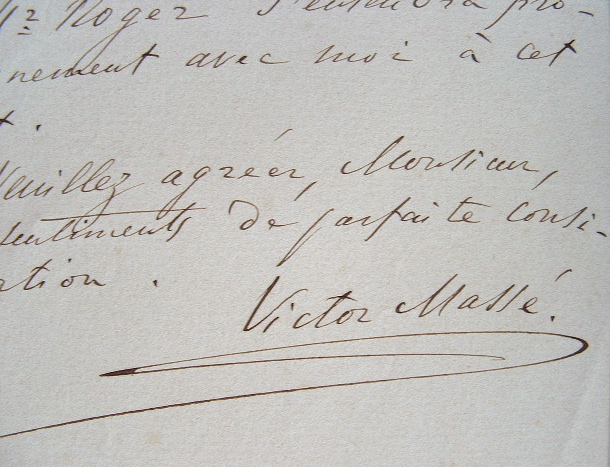 Mr Roger s'entendra pro-
nement avec moi à cet
t.
Veuillez agréer, Monsieur,
sentiments de parfaite consi-
ation.
Victor Massé.